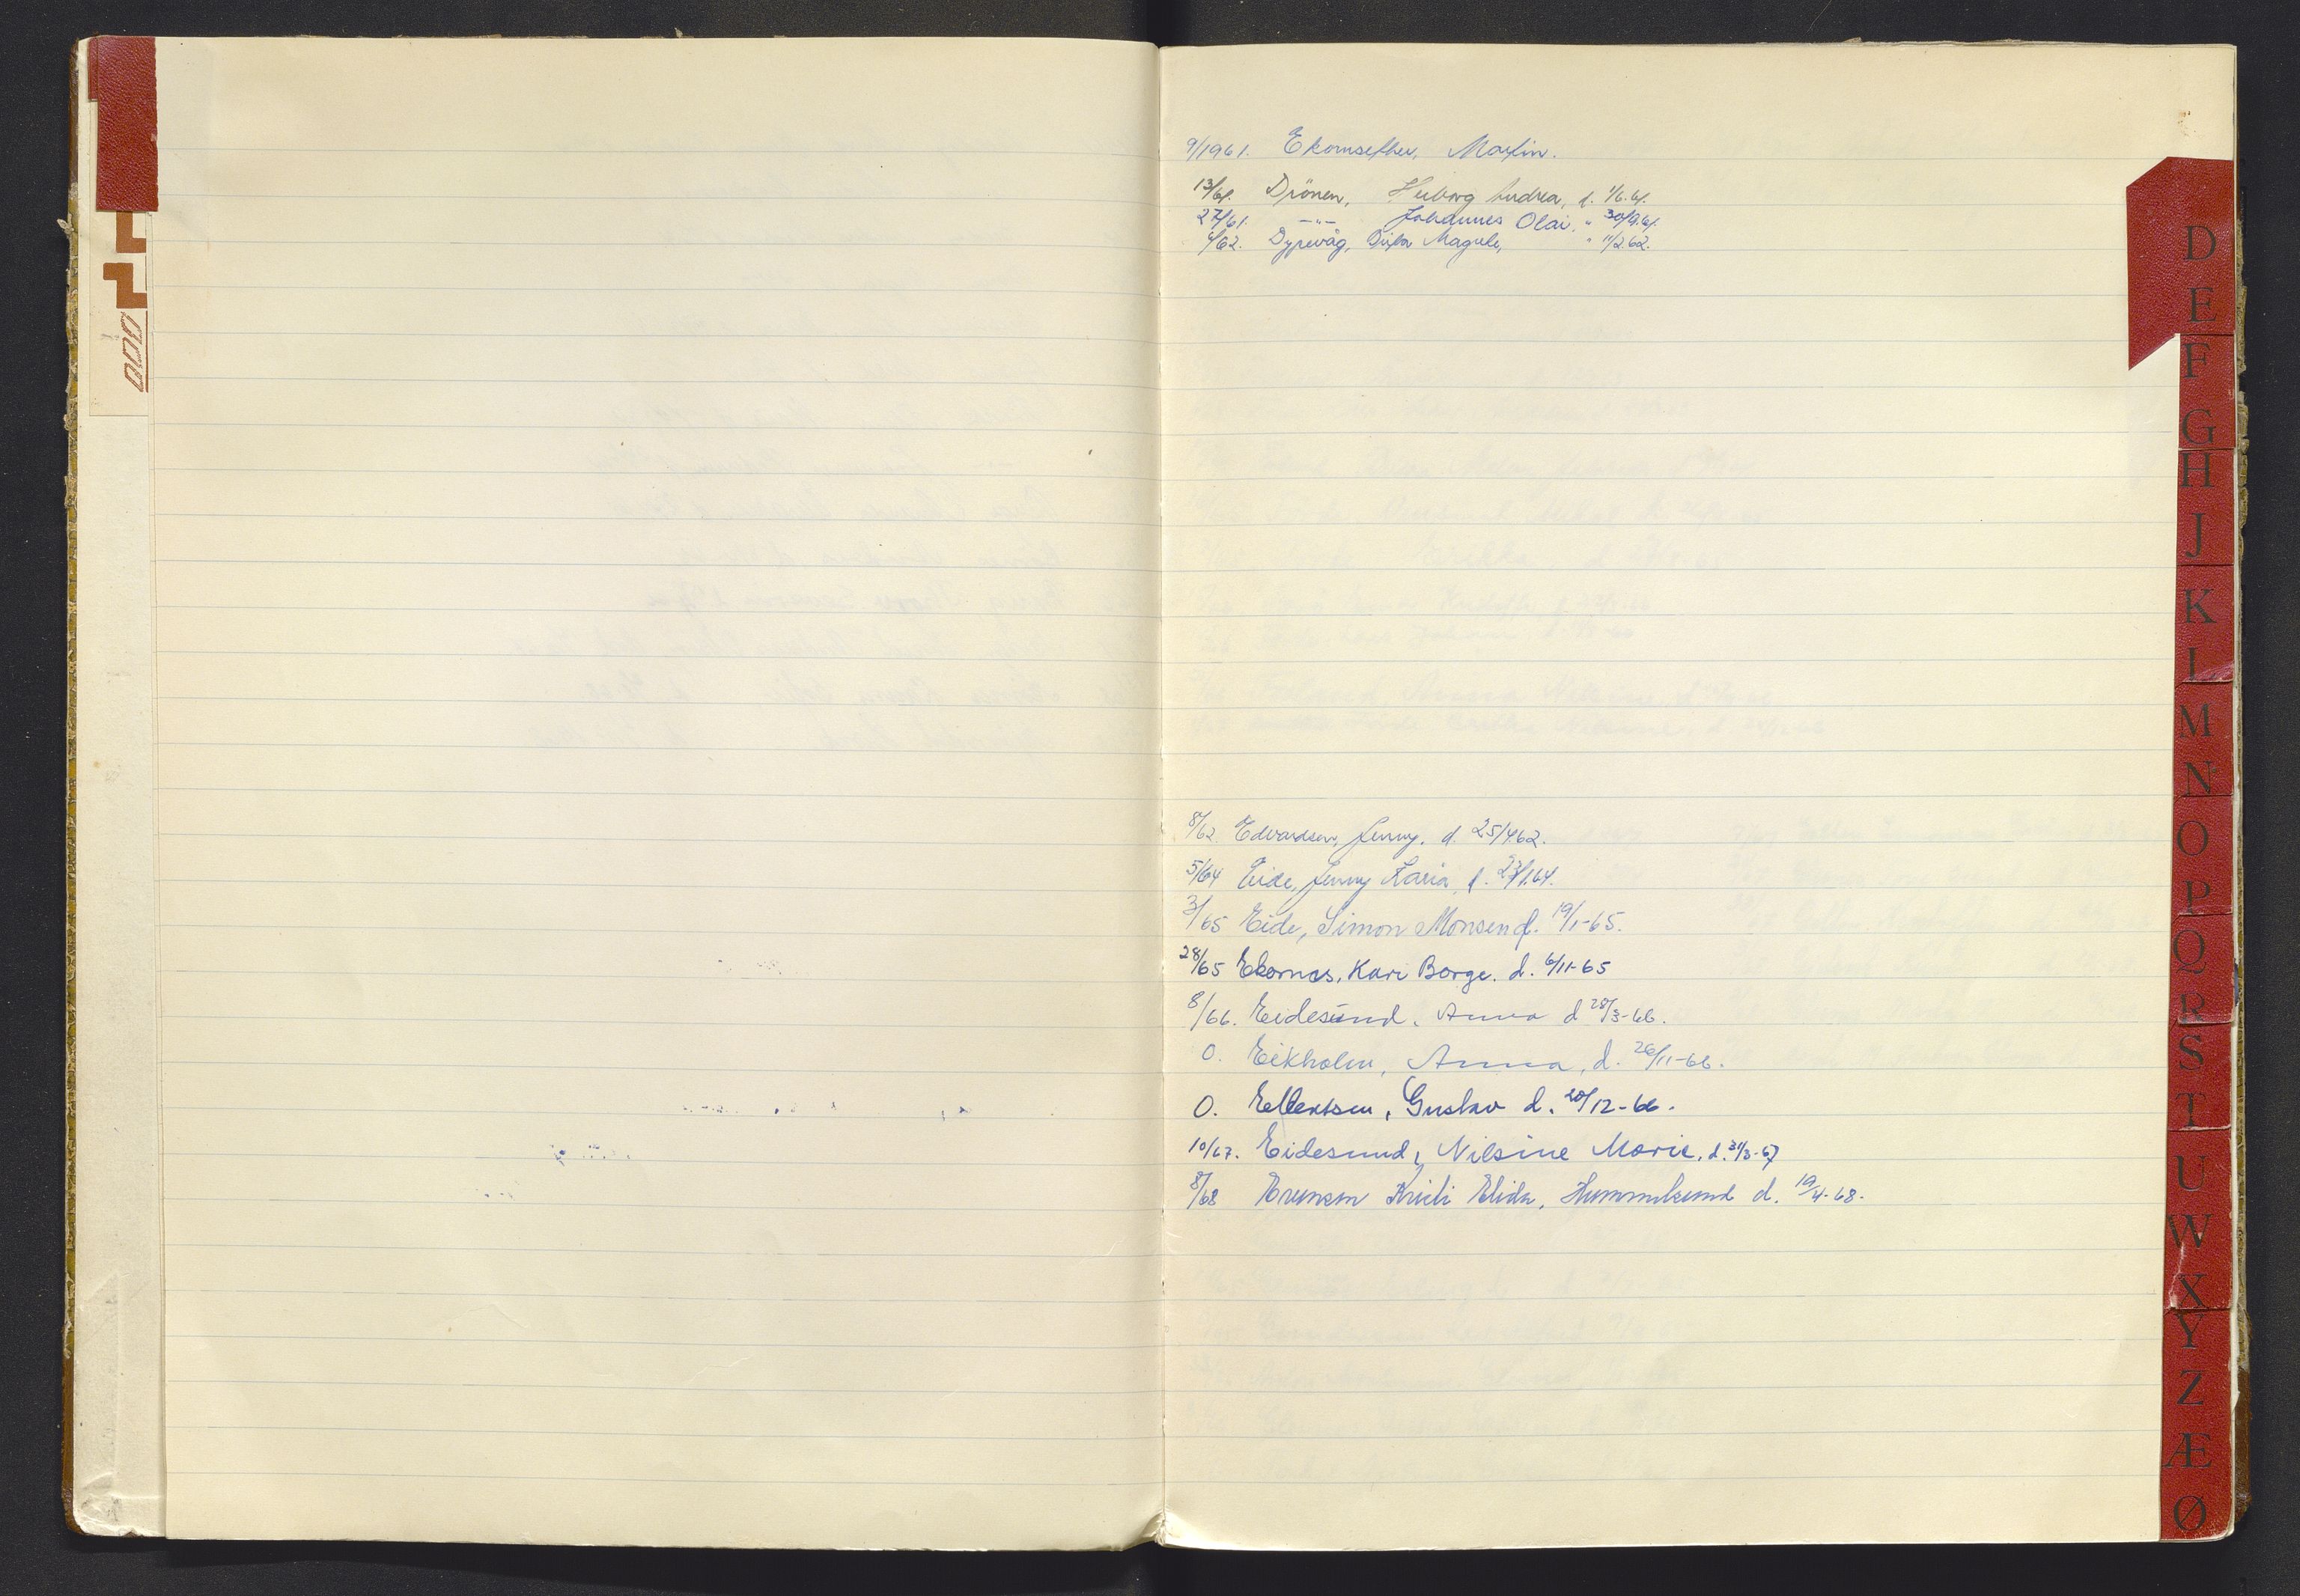 9/1961. Ekornsether, Martin.
13/61. Drönen, Herborg Andrea, d. 1/6.61.
27/61. -"- Johannes Olai, " 30/9.61.
6/62. Dyrevåg, Magnhi, " 11/2.62.
8/62 Edvardsen, Jenny. d. 25/4.62.
5/64 Eide, Jenny Karia, d. 23/1.64.
3/65 Eide, Simon Monsen d. 19/1-65.
28/65 Ekornes, Kari Borge. d. 6/11-65
8/66. Eidesund, Anna d 28/3-66.
0. Eikholm, Anna, d. 26/11-66.
0. Ellertsen, Gustav d. 20/12-66.
10/67. Eidesund, Nilsine Marie, d. 31/3-67
8/68 Elida, Hummelsund d. 19/4-68.
D
E
F
G
H
J
K
L
M
N
O
P
Q
R
S
T
U
W
X
Y
Z
Æ
Ø